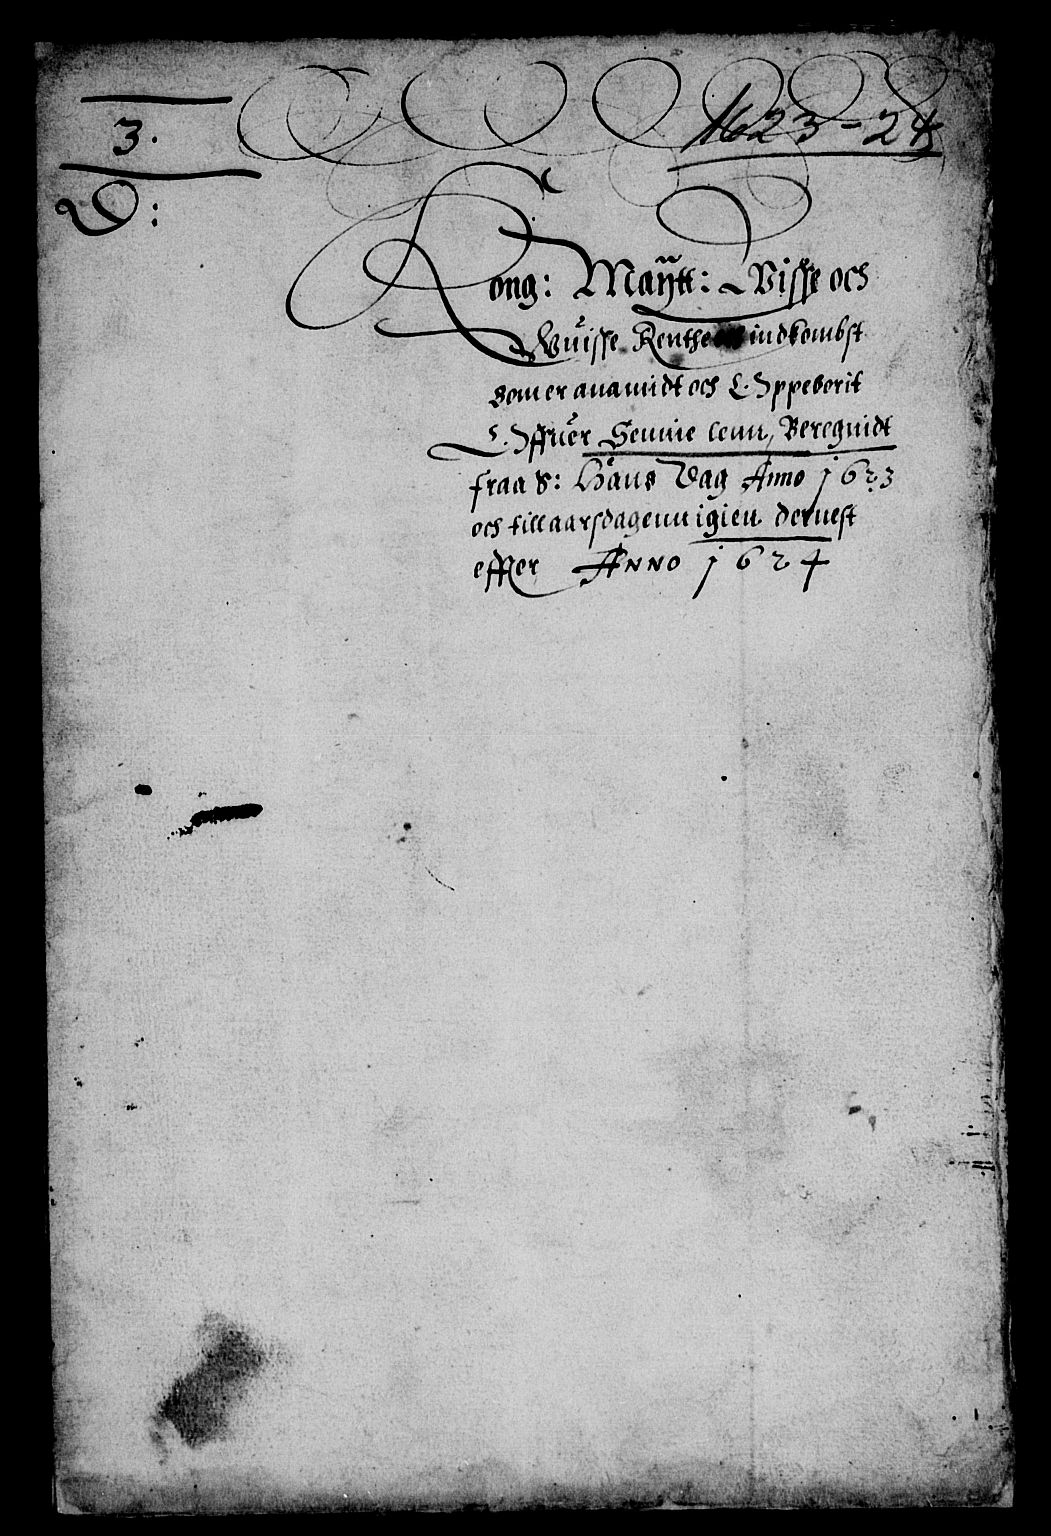 3.
1623-24
D:
Kong: Maÿtt: Visse och
Wuisse Renthe indkombst
som er anamidt och Oppeborit
Offuer Semne lenn, Beregnidt
fraa S: Hans Dag Anno 1623
och till aarsdagenn igien dernest
effter Anno 1624